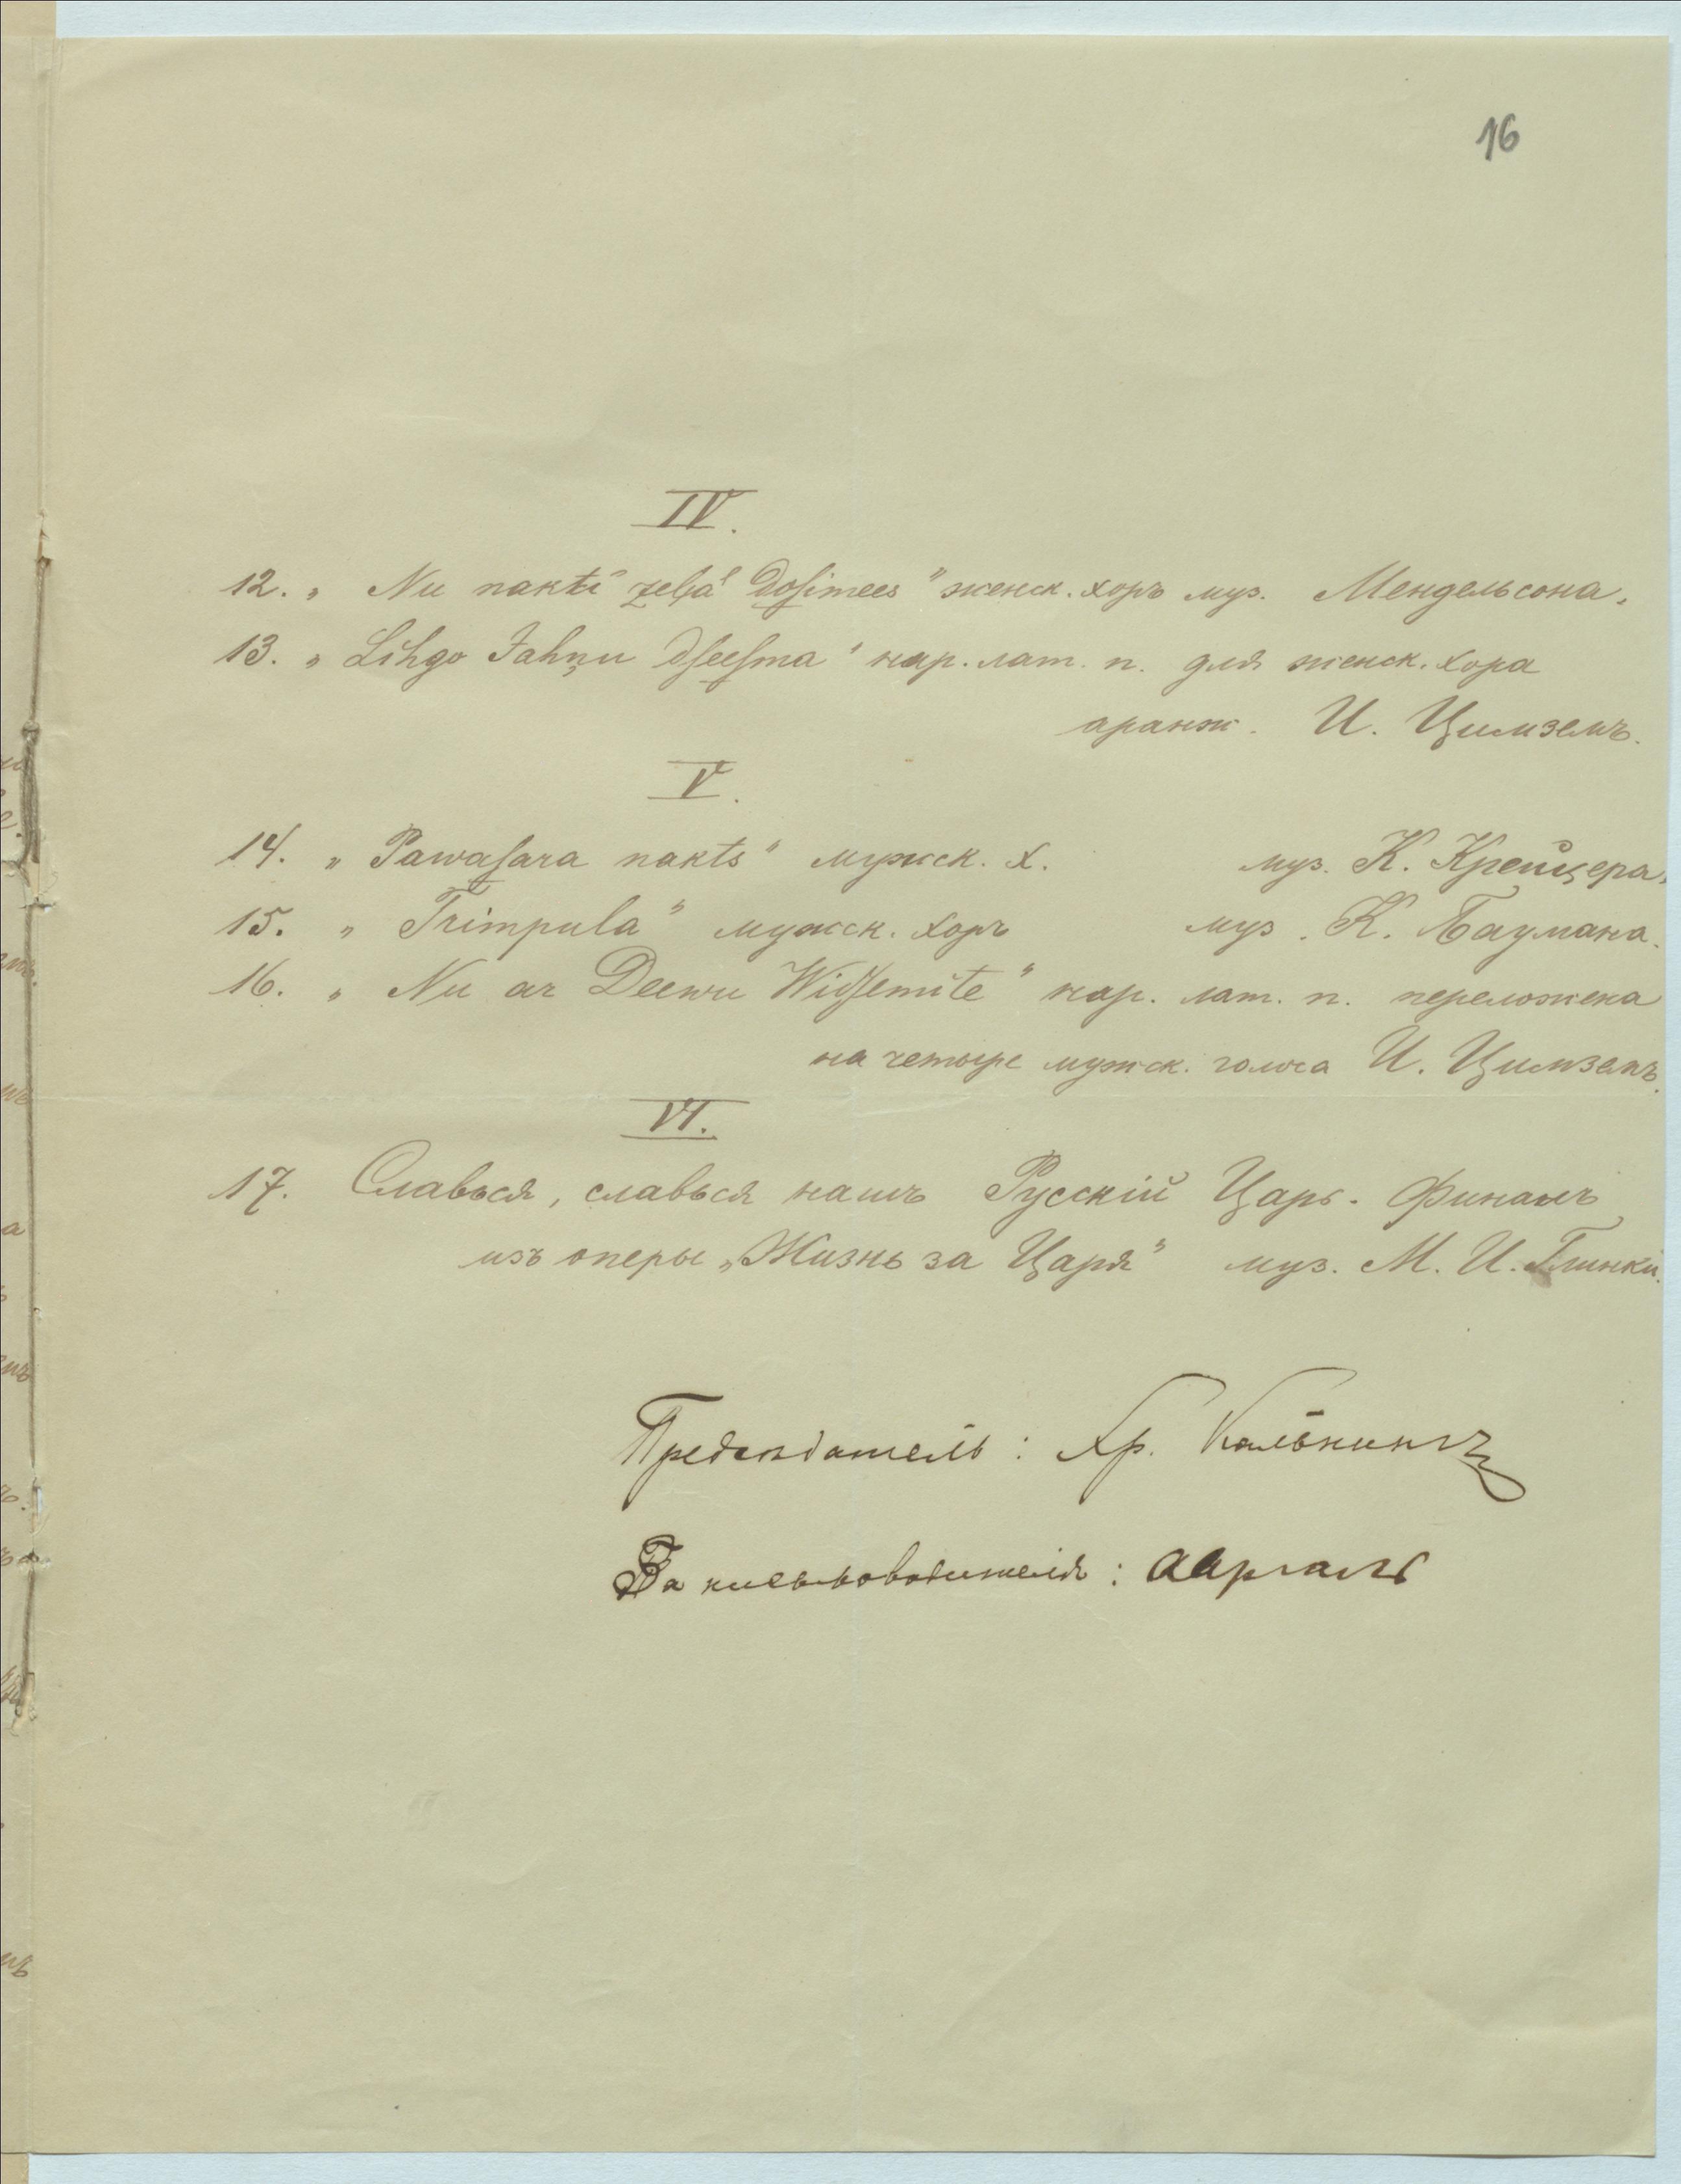 16
IV.
12. „ Nu naktî zeļâ doſimees " женск. хоръ муз. Мендельсона.
13. „ Lihgo Jahņu dſeeſma " нар. лат. п. для женск. хора
аранж. И. Цимземъ.
V.
14. „ Pawaſara nakts " мужск. х. муз. К. Крейцера.
15. „ Trimpula " мужск. хоръ муз. К. Баумана.
16. „ Nu ar Deewu Widſemite " нар. лат. п. переложена
на четыре мужск. голоса И. Цимземъ.
VI.
17. Славься, славься нашъ Русскій Царь. Финалъ
изъ оперы „Жизнь за Царя" муз. М. И. Глинки.
Предсѣдатель: Хр. Кальнингъ
За письмоводителя: